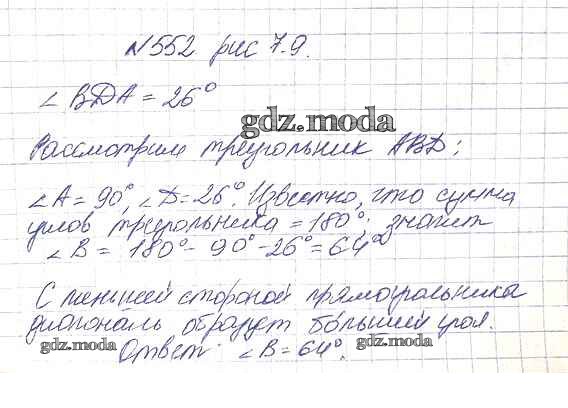 №552 рис 7.9.
∠ BDA = 26°
gdz.moda
Рассмотрим треугольник ABD:
∠A = 90°, ∠D = 26°. Известно, что сумма
углов треугольника = 180°; значит
∠B = 180° - 90° - 26° = 64°
С меньшей стороной прямоугольника
диагональ образует больший угол.
gdz.moda Ответ: ∠B = 64°. gdz.moda